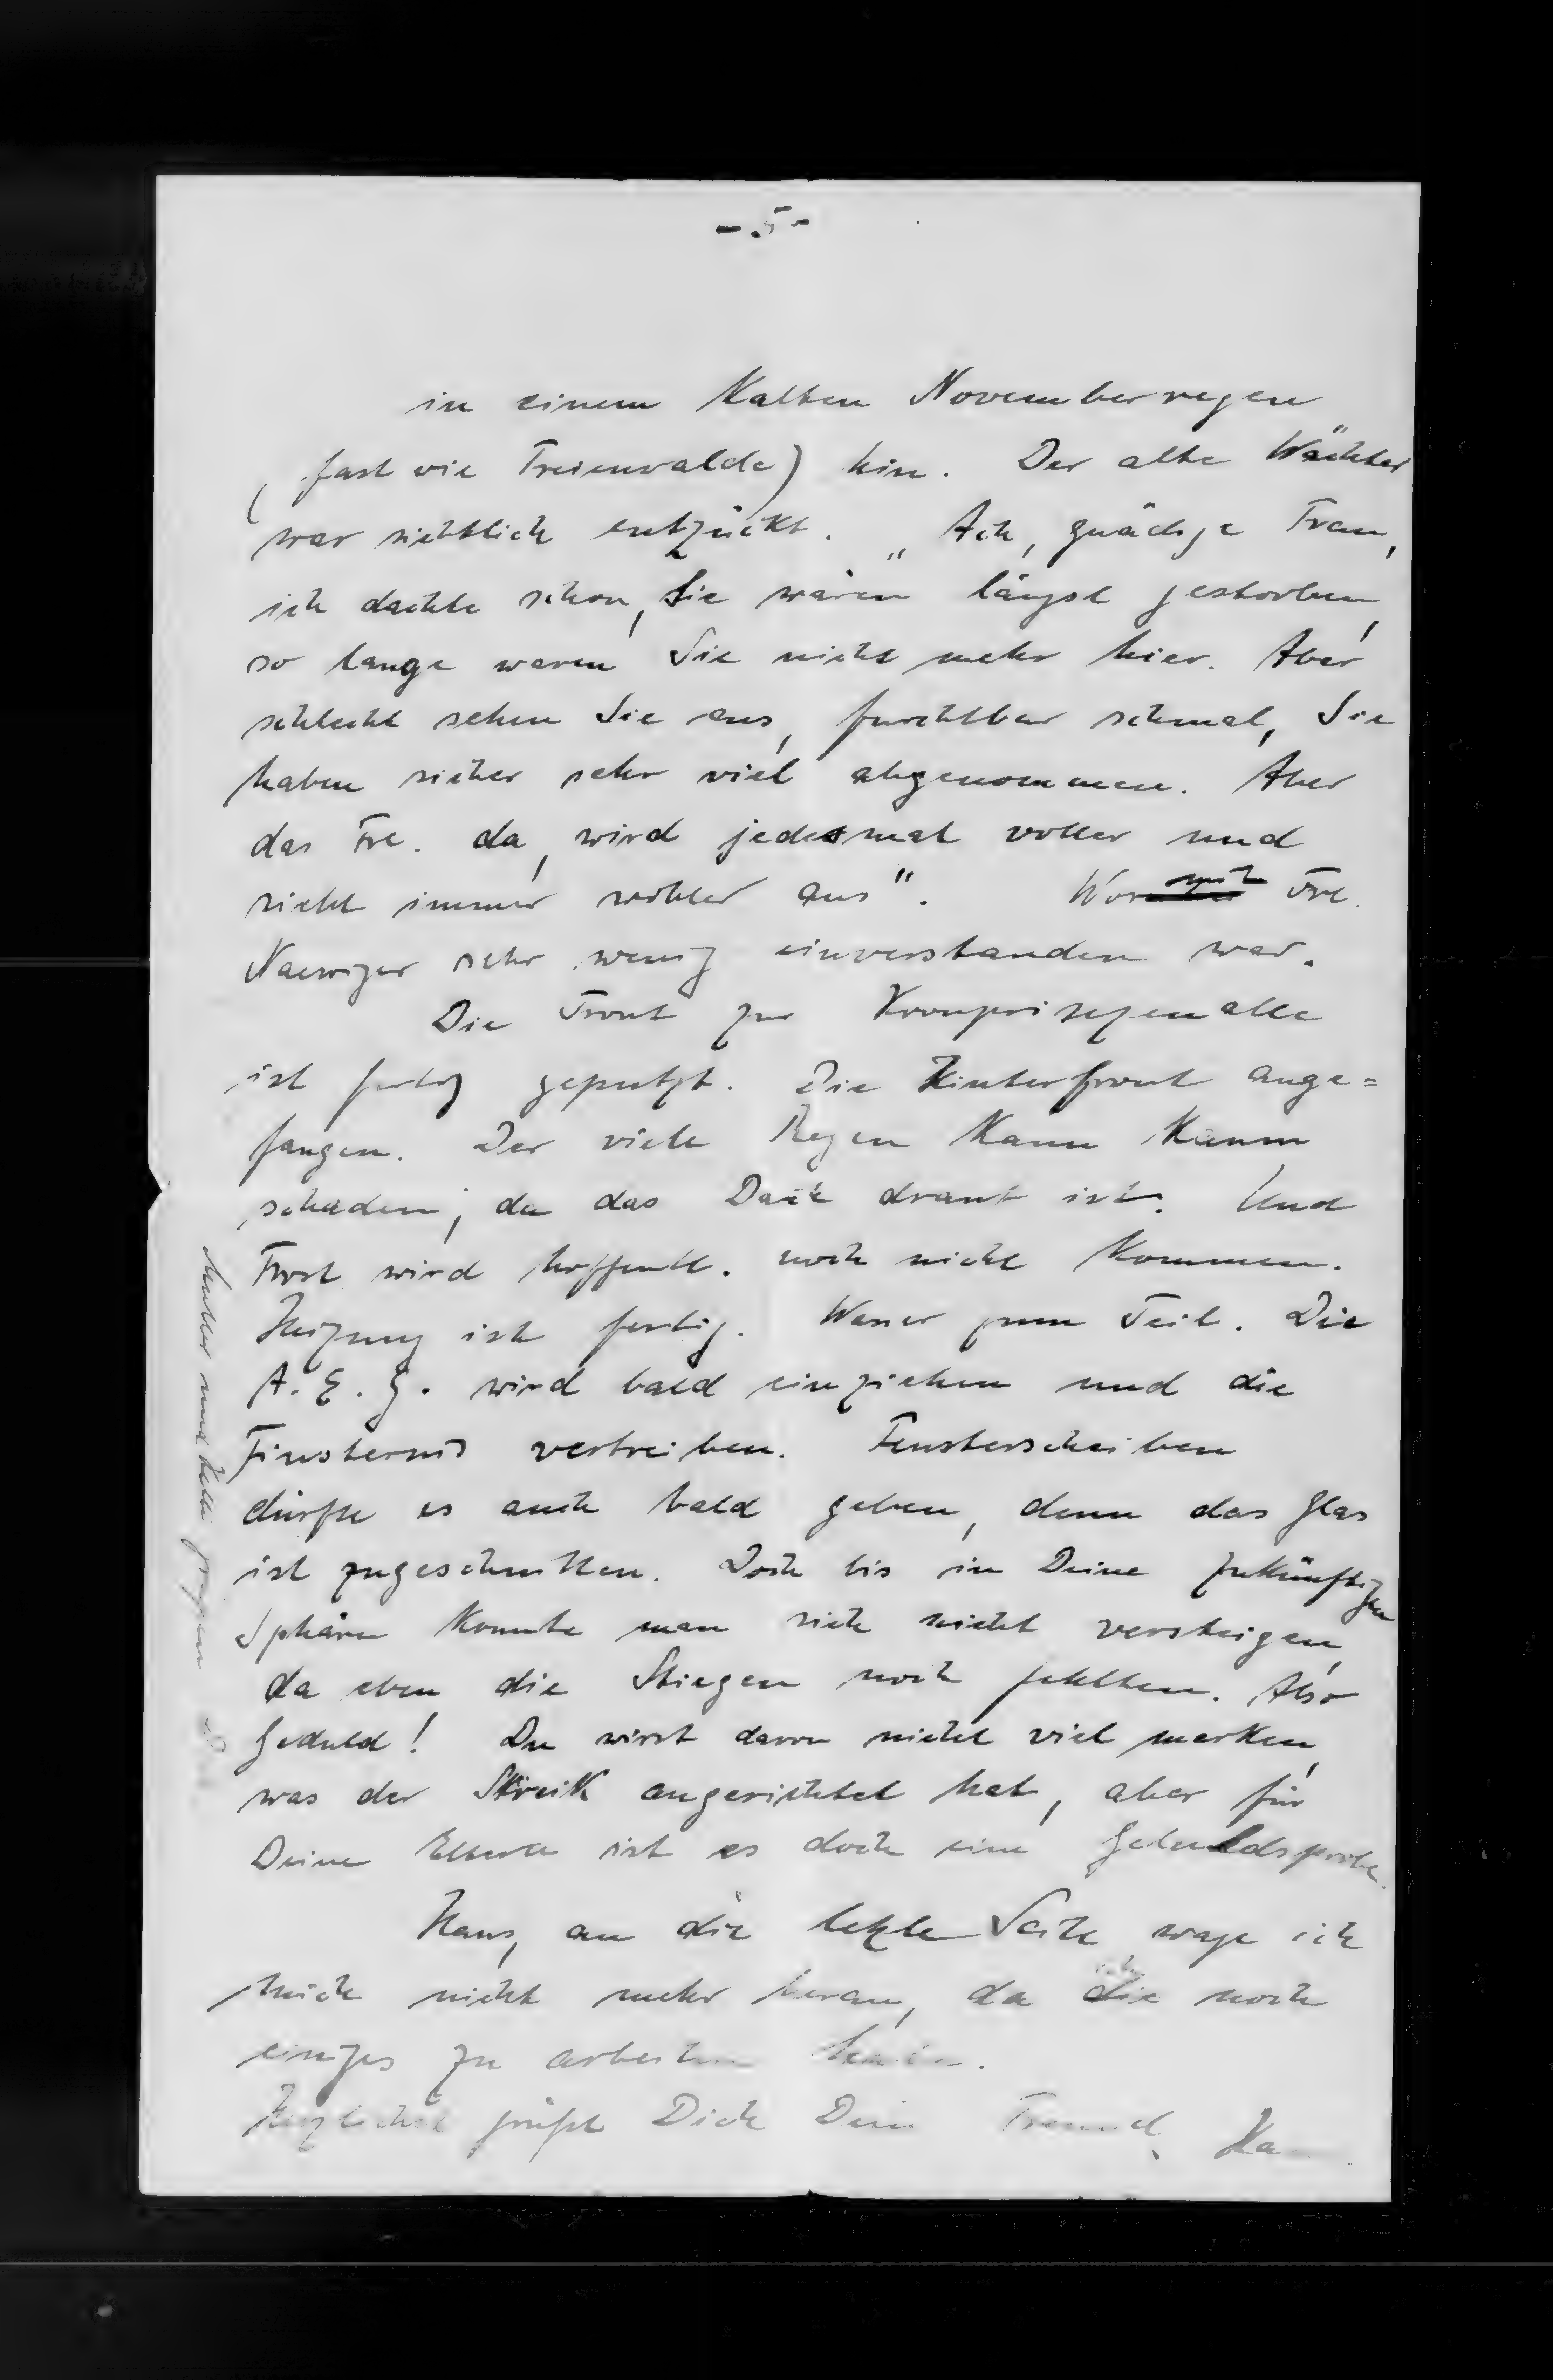 - 5 -
in einem kalten Novemberregen
(fast wie Freienwalde) hin. Der alte Wächter
war sichtlich entzückt. „Ach, gnädge Frau,
ich dachte schon, Sie wären längst gestorben,
so lange waren Sie nicht mehr hier. Aber
schlecht sehen Sie aus, furchtbar schmal, Sie
haben sicher sehr viel abgenommen. Aber
das Frl. da, wird jedesmal voller und
sieht immer wohler aus". Womit Frl.
sehr wenig einverstanden war.
Die Front zur Kronprinzenallee
ist fertig geputzt. Die Hinterfront ange=
fangen. Der viele Regen kann kaum
schaden, da das Dach drauf ist. Und
Frost wird hoffentl. noch nicht kommen.
Heizung ist fertig. Wasser zum Teil. Die
A.E.G. wird bald einziehen und die
Finsternis vertreiben. Fensterscheiben
dürfte es auch bald geben, denn das Glas
ist zugeschnitten. Doch bis in Deine zukünftigen
Sphären konnte man sich nicht versteigen,
da eben die Stiegen noch fehlten. Also
Geduld! Du wirst davon nicht viel merken,
was der Streik angerichtet hat, aber für
Deine Eltern ist es doch eine Geduldsprobe.
Hans, an die letzte Seite wage ich
mich nicht mehr heran, da die noch
einges zu arbeiten
Herzlichst grüßt Dich Dein Freund
Mutter und